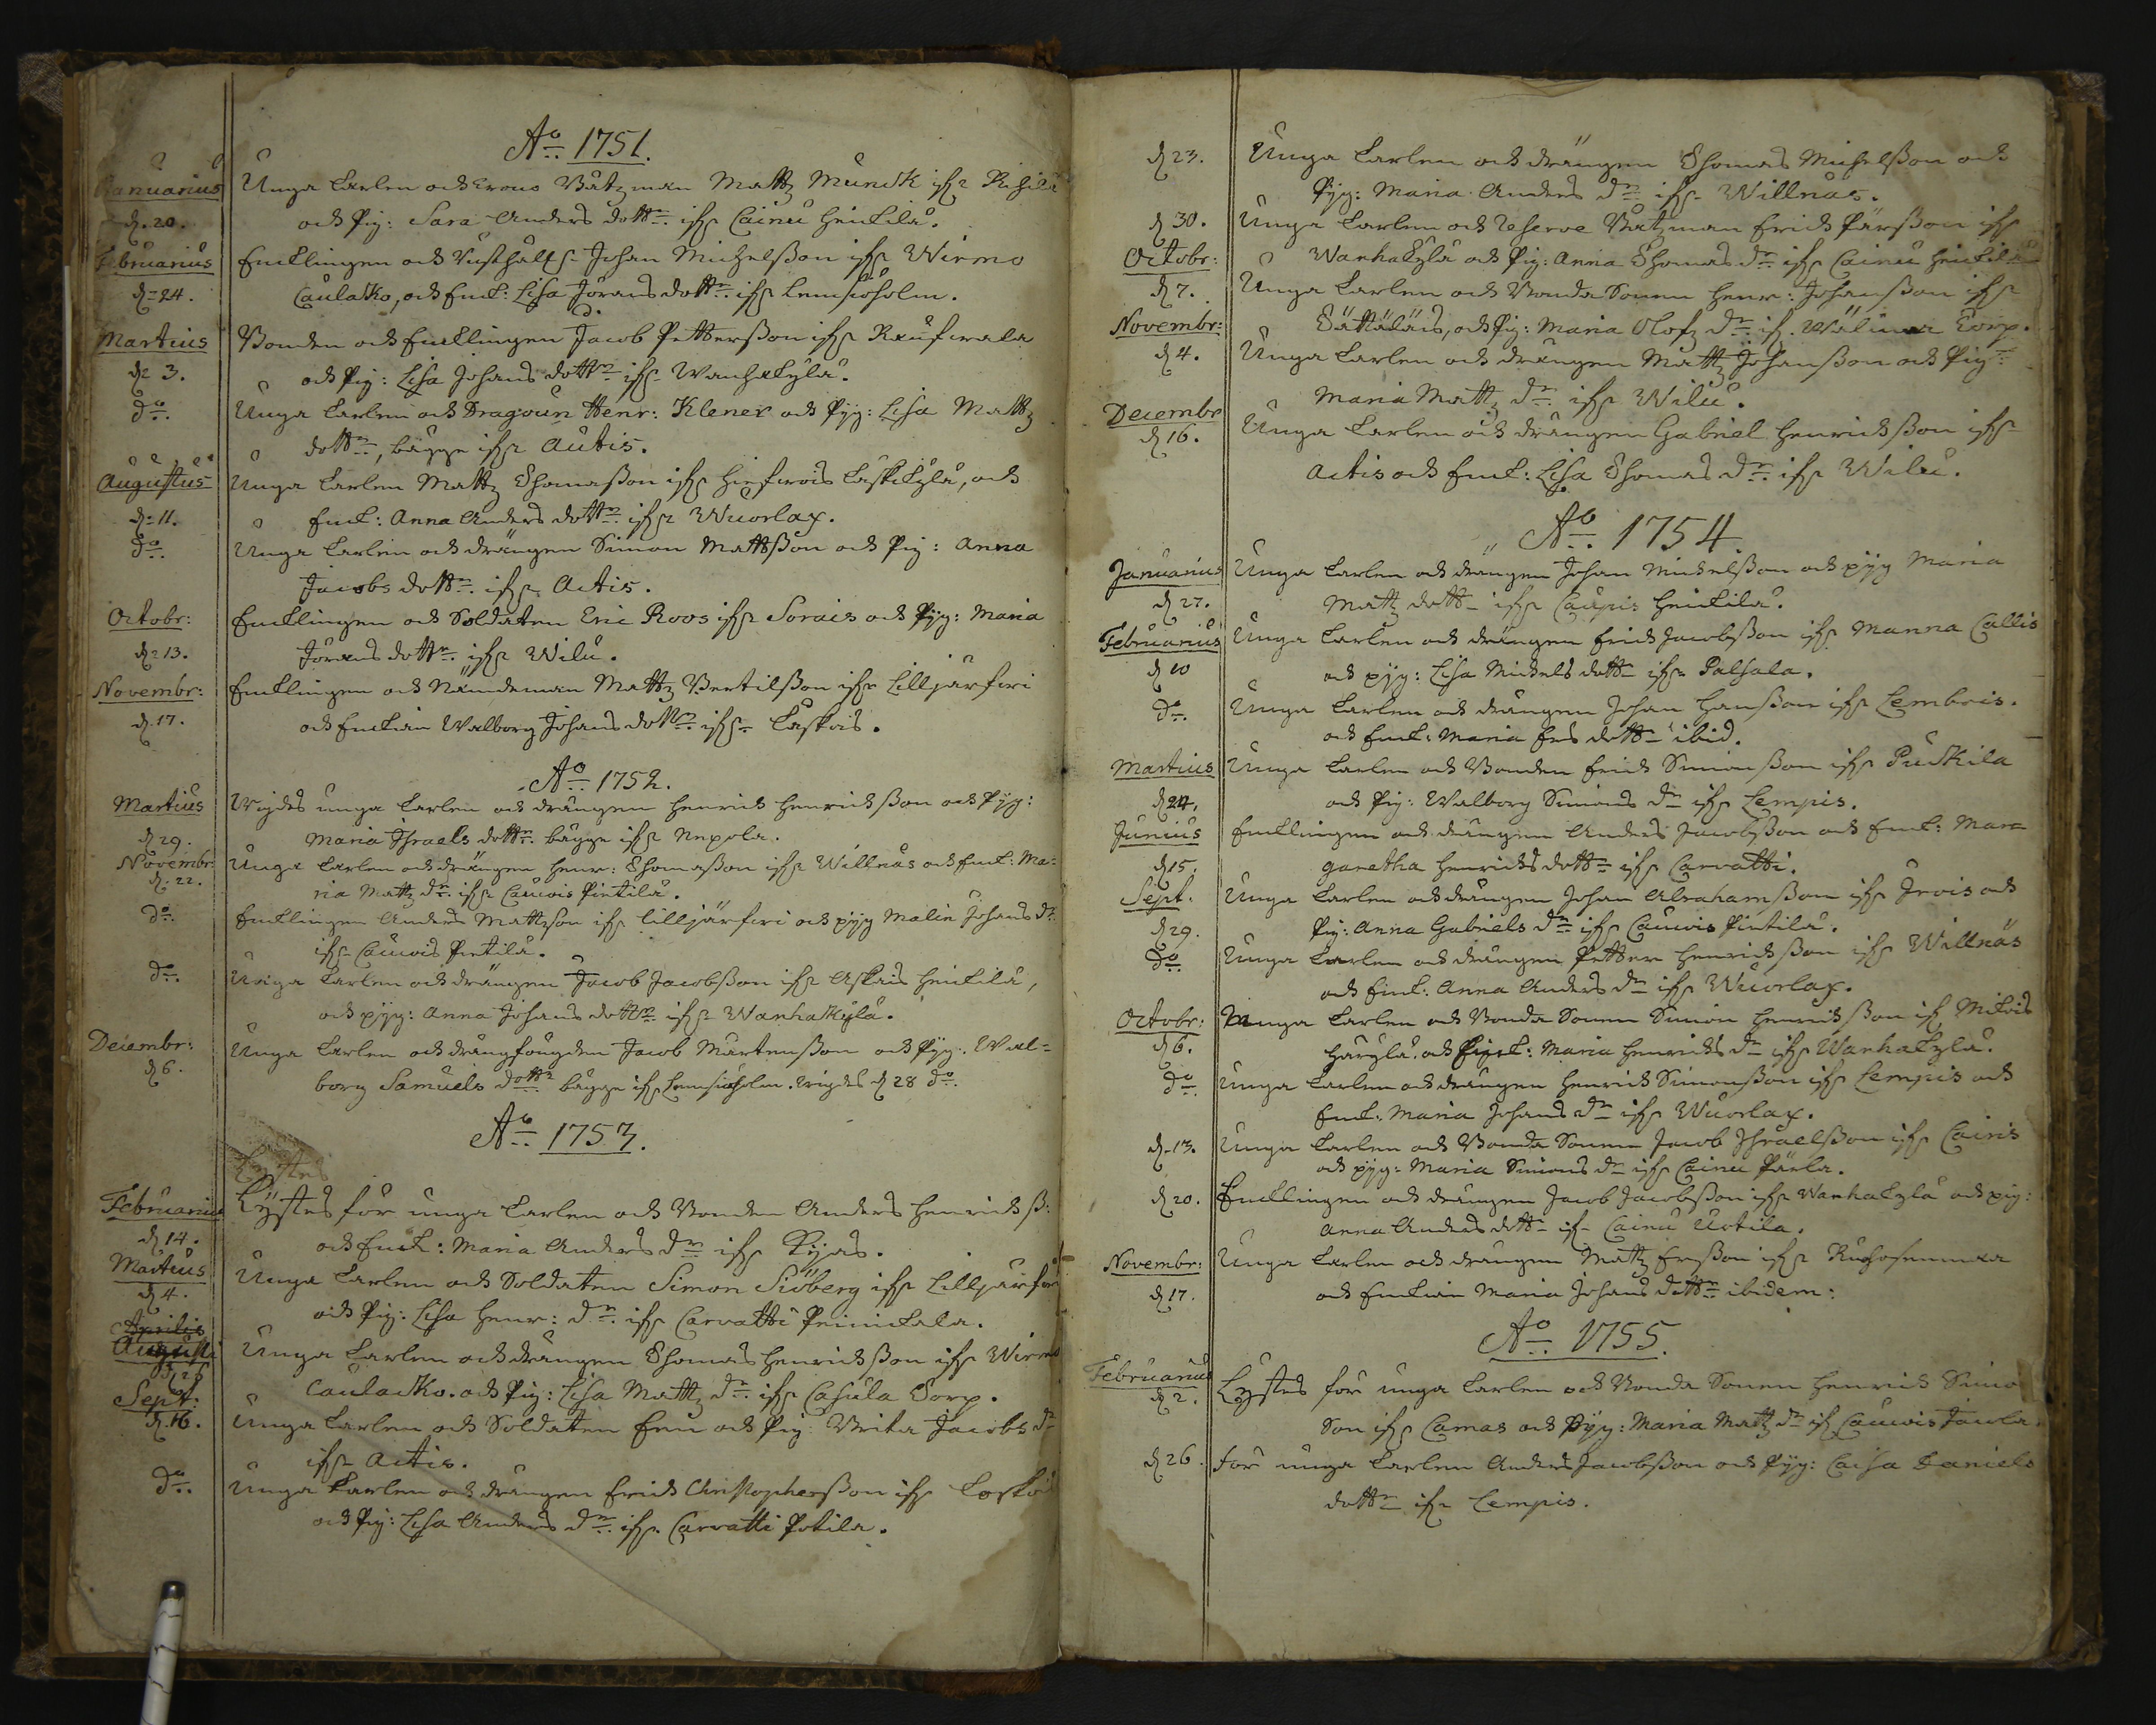 Ao 1751.
Januarius Unga Karlen och Crono Båtzman Mattz Munck ifr: Pihila
d. 20. och Pig: Sara Anders dottr. ifr Cainu Heickilä.
Februarius Encklingen och Rusthåll: Johan Michelsson ifr Wirmo
d. 24. Caulacko, och Enck: Lisa Jörans dottr. ifr Lemsiöholm.
Martius Bonden och Encklingen Jacob Pettersson ifr
d. 3. och Pig: Lisa Johans dottr ifr Wanhakylä.
do. Unga Karlen och Dragoun Henr: Klener och Pijg: Lisa Mattz
dottr, bägge ifr Autis.
Augustus Unga Karlen Mattz Thomasson ifr Laskikylä, och
d. 11. Enck: Anna Anders dottr ifr Wuorlax.
do. Unga Karlen och drängen Simon Mattsson och Pig: Anna
Jacobs dottr. ifr Actis.
Octobr: Encklingen och Soldaten Eric Roos ifr Sorais och Pijg: Maria
d. 13. Jörans dottr. ifr Wilu.
Novembr: Encklingen och Nämdeman Mattz Bertilsson ifr Lilljärfwi
d. 17. och Enckian Walborg Johans dottr. ifr Laskois.
Ao 1752.
Martius Wigdes unga Karlen och drängen Henrich Henrichsson och Pijg:
d 29. Maria Israels dottr. bägge ifr Nepola.
Novembr: Unga Karlen och drängen Henr: Thomasson ifr Willnäs och Enck: Ma-
d. 22. ria Mattz dr. ifr Cauwis Pintilä.
do. Encklingen Anders Mattzson ifr lilljärfwi och pijg Malin Johans dr
ifr Cauwis Pintilä.
do. Unga Karlen och drängen Jacob Jacobsson ifr Askais Heickilä,
och pijg: Anna Johans dottr ifr Wanhakylä.
Decembr: Unga Karlen och drängfougden Jacob Mårtensson och Pijg: Wal-
d 6. borg Samuels dottr bägge ifr Lemsiöholm. wigdes d 28 do.
Ao 1753.
Lystes
Februarius Lÿstes för unga Karlen och Bonden Anders Henrichss:
d 14. och Enck: Maria Anders dr ifr Rijas.
Martius Unga Karlen och Soldaten Simon Siöberg ifr Lilljärfwi
d 4. och Pig: Lisa Henr: dr. ifr Carvatti Peinickala.
Aprilis
Augusti Unga Karlen och drängen Thomas Henrichsson ifr Wirmo
Caulacko. och Pig: Lisa Mattz dr. ifr Casula Torp.
Sept:
d. 16. Unga Karlen och Soldaten Een och Pig: Brita Jacobs dr
ifr Actis.
do. Unga Karlen och drängen Erich Christophersson ifr Laskois
och Pig: Lisa Anders dr. ifr Carvatti Potila.
d 23. Unga Karlen och drängen Thomas Michelsson och
Pijg: Maria Anders dr ifr Willnäs.
d 30. Unga Karlen och Reserve Båtzman Erich Pärsson ifr
Octobr: Wanhakylä och Pig: Anna Thomas dr ifr Cainu Heickilä
d 7. Unga Karlen och Bonda Sonen Henr: Johansson ifr
Novembr: Sättäläis, och Pig: Maria Olofz dr: if. Wälimaa Torp.
d 4. Unga Karlen och drängen Mattz Johansson och Pig:
Maria Mattz dr ifr Wilu.
Decembr
d 16. Unga Karlen och drängen Gabriel Henrichsson ifr
Actis och Enck: Lisa Thomas dr. ifr Wilu.
Ao 1754.
Januarius Unga Karlen och drängen Johan Michelsson och pijg Maria
d 27. Mattz dottr ifr Caupis Heickilä.
Februarius Unga Karlen och drängen Erich Jacobsson ifr Manna Callis
d 10 och pijg: Lisa Michels dottr ifr Palsala.
do. Unga Karlen och drängen Johan Hansson ifr Lembois.
och Enck: Maria Ers dottr ibid.
Martius Unga Karlen och Bonden Erich Simonsson ifr Puckila
d 24. och Pig: Walborg Simons dr ifr Lempis.
Junius Encklingen och drängen Anders Jacobsson och Enck: Mar-
d 15. garetha Henrichs dottr ifr Carvatti.
Sept. Unga Karlen och drängen Johan Abrahamsson ifr Irois och
d 29. Pig: Anna Gabriels dr ifr Cauwis Pintilä.
do Unga Karlen och drängen Petter Henrichsson ifr Willnäs
och Enck: Anna Anders dr ifr Wuorlax.
Octobr: Unga Karlen och Bonda Sonen Simon Henrichsson if Mikois
d 6. Härylä. och Enck: Maria Henrichs dr ifr Wanhakylä.
do Unga Karlen och drängen Henrich Simonsson ifr Lempis och
Enck: Maria Johans dr ifr Wuorlax.
d. 13. Unga Karlen och Bonda Sonen Jacob Israelsson ifr Cairis
och pijg: Maria Simons dr ifr Cainu Pärla.
d 20. Encklingen och drängen Jacob Jacobsson ifr Wanhakylä och pig:
Anna Anders dottr if Cainu Uotila.
Novembr: Unga Karlen och drängen Mattz Ersson ifr
d 17. och Enckian Maria Johans dottr ibidem:
Ao 1755.
Februarius
d 2. Lÿstes för unga Karlen och Bonda Sonen Henrich Simo
Son ifr Camas och Pijg: Maria Mattz dr if Cauwis Jaula.
d 26. för unga Karlen Anders Jacobsson och Pijg: Caisa Daniels
dottr ifr Lempis.